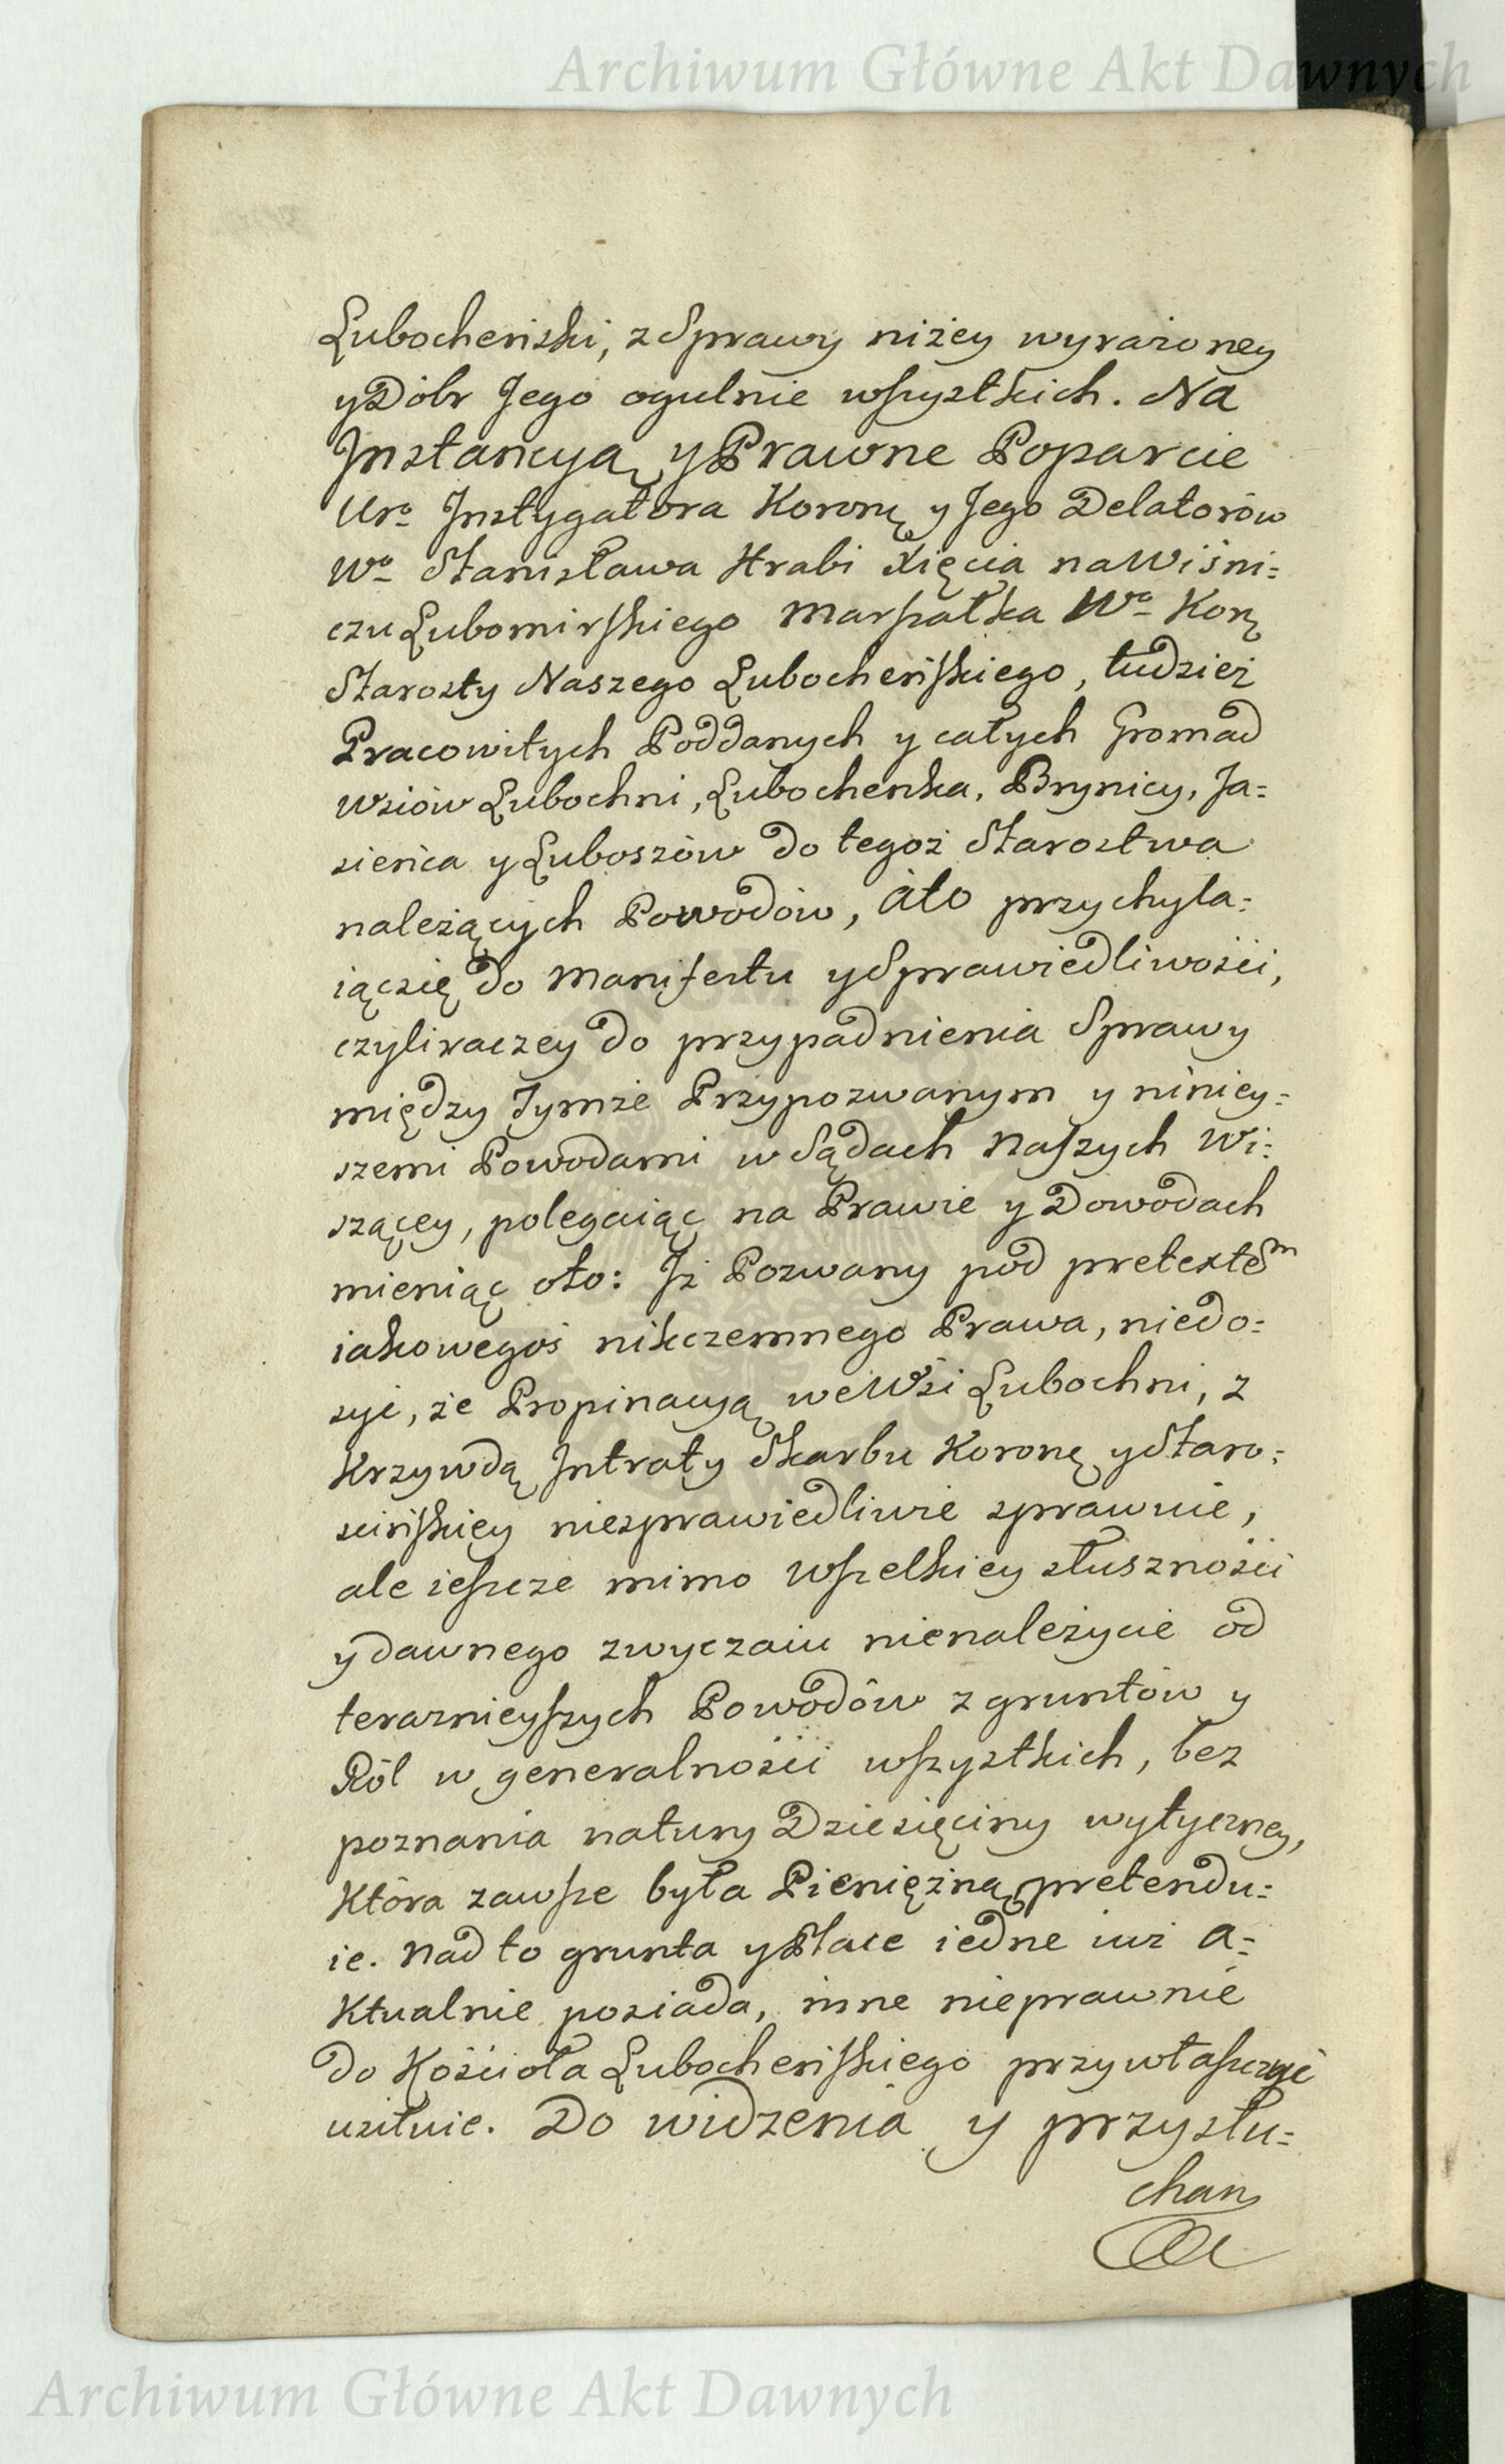 Archiwum Główne Akt Dawnych
Lubocheński, z Sprawy niżey wyrażoney
y Dóbr Jego ogulnie wszystkich. Na
Instancyą y Prawne Poparcie
Uro Instygatora Koronę y Jego Delatorów
Wo Stanisława Hrabi Xięcia na Wiśni=
czu Lubomirskiego Marszałka Wo Korę
Starosty Naszego Lubocheńskiego, tudzież
Pracowitych Poddanych y całych Gromad
Wsiów Lubochni, Lubochenka, Brynicy, Ja=
sieńca y Luboszów do tegoż Starostwa
należących Powodów, áto przychyla=
iącsię do Manifestu y Sprawiedliwości,
czyliraczey do przypadnienia Sprawy
między Tymże Przypozwanym y niniey=
szemi Powodami w Sądach Naszych Wi=
szącey, polegaiąc na Prawie y Dowodach
mieniąc oto: Iż Pozwany pod pretextem
iakowegoś nikczemnego Prawa, niedo=
syć, że Propinacyą we Wsi Lubochni, z
Krzywdą Intraty Skarbu Koronę y Staro=
scińskiey niesprawiedliwie sprawuie,
ale ieszcze mimo Wszelkiey słuszności
y dawnego zwyczaiu nienależycie od
teraznieyszych Powodów z gruntów y
Ról w generalności wszystkich, bez
poznania natury Dziesięciny wytyczney,
Która zawsze była Pieniężną, pretendu=
ie. Nad to grunta y Place iedne iuż A=
Ktualnie posiada, inne nieprawnie
do Kościoła Lubocheńskiego przywłaszczyć
usiłuie. Do widzenia y przysłu=
chan
Archiwum Główne Akt Dawnych